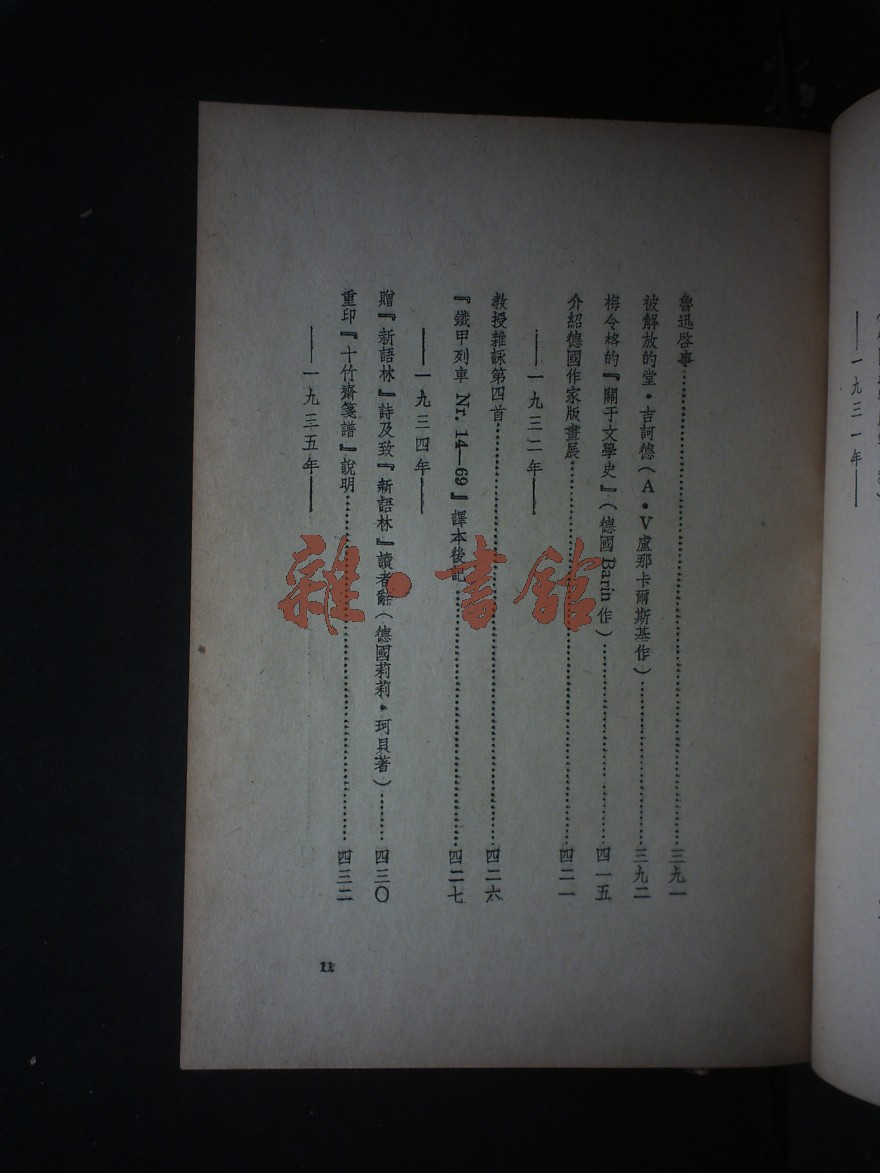 魯迅啓事……三九一
被解放的堂·吉訶德（A·V盧那卡爾斯基作）……三九二
梅令格的『關于文學史』（德國 Barin 作）……四一五
介紹德國作家版畫展……四二一
——一九三二年——
教授雜詠第四首……四二六
『鐵甲列車 Nr. 14—69』譯本後記……四二七
——一九三四年——
贈『新語林』詩及致『新語林』讀者辭（德國莉莉·珂貝著）……四三〇
重印『十竹齋箋譜』說明……四三二
——一九三五年——
11
——一九三一年——
雜·書館